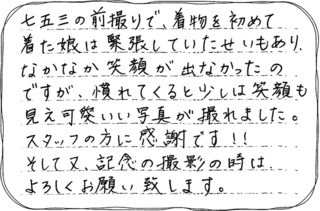 七五三の前撮りで、着物を初めて
着た娘は緊張していたせいもあり、
なかなか笑顔が出なかったの
ですが、慣れてくると少しは笑顔も
見え可愛いい写真が撮れました。
スタッフの方に感謝です!!
そして又、記念の撮影の時は
よろしくお願い致します。